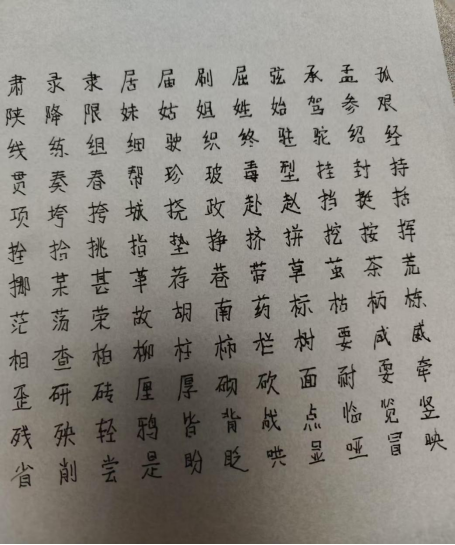 肃 录 隶 居 届 刷 屈 弦 承 孟 孤
陕 降 限 妹 姑 姐 姓 始 驾 参 艰
线 练 组 细 驶 织 终 驻 驼 绍 经
贯 奏 春 帮 珍 玻 毒 型 挂 封 持
项 垮 挎 城 挠 政 赴 赵 挡 挺 括
拴 拾 挑 指 垫 挣 挤 拼 挖 按 挥
挪 某 甚 革 荐 巷 带 草 茧 茶 荒
茫 荡 荣 故 胡 南 药 标 枯 柄 栋
相 查 柏 柳 柱 柿 栏 树 要 咸 威
歪 研 砖 厘 厚 砌 砍 面 耐 耍 牵
残 殃 轻 鸦 皆 背 战 点 临 览 竖
省 削 尝 是 盼 眨 哄 显 哑 冒 映